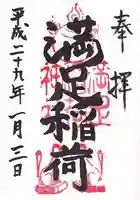 奉拝
満足稲荷
平成二十九年一月三日